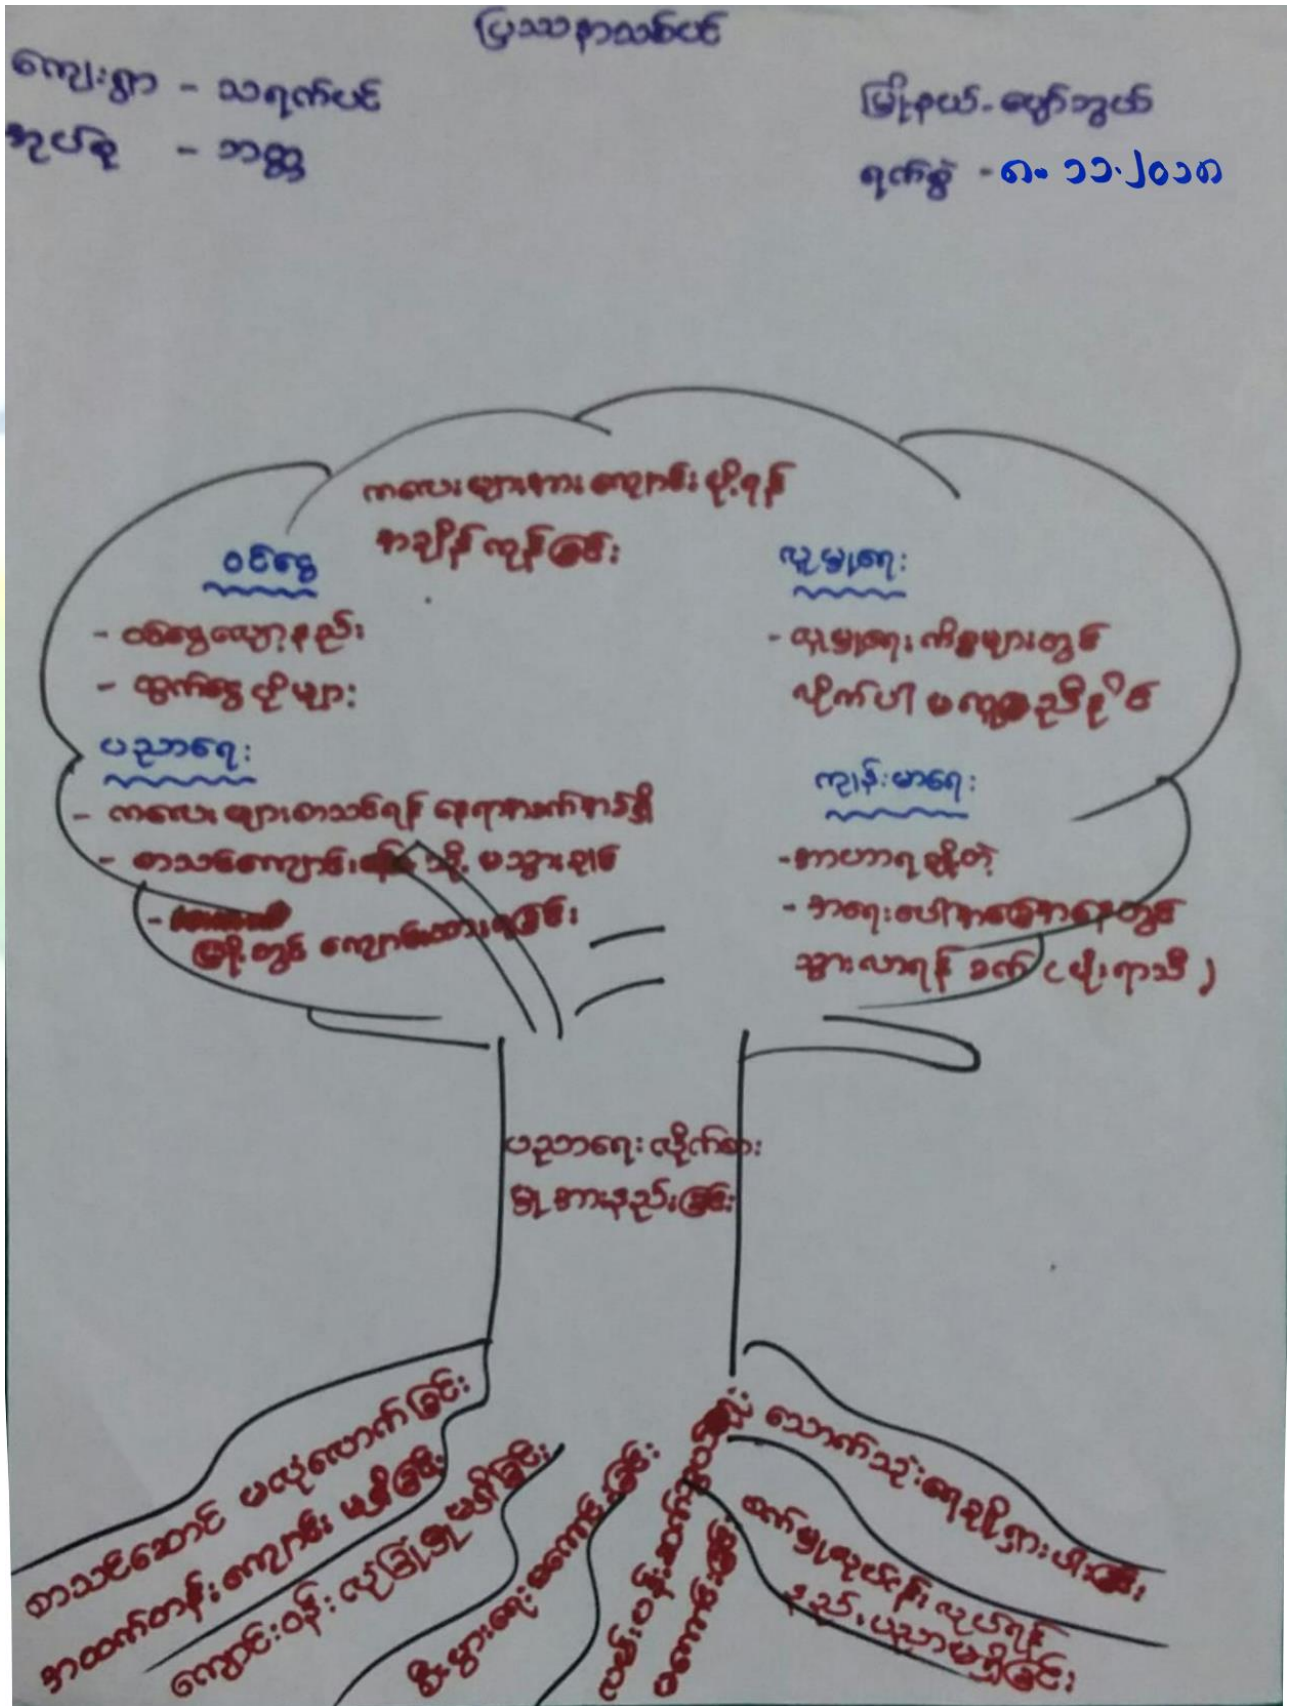 ပြဿနာသစ်ပင်
ကျေးရွာ - သရက်ပင်
မြို့နယ် - ပျော်ဘွယ်
အုပ်စု - ဘတ္တ
ရက်စွဲ - ၈.၁၁.၂၀၁၈
ကလေးများအား ကျောင်းပို့ရန်
အချိန်ကုန်ခြင်း
ဝင်ငွေ
- ဝင်ငွေလျော့နည်း
- ထွက်ငွေပိုများ
ပညာရေး
- ကလေးများစာသင်ရန် နေရာအခက်အခဲရှိ
- စာသင်ကျောင်း သို့ မသွားချင်
- မြို့တွင် ကျောင်းထားရခြင်း
လူမှုရေး
- လူမှုရေးကိစ္စများတွင်
လိုက်ပါ မကူညီနိုင်
ကျန်းမာရေး
- အာဟာရချို့တဲ့
- အရေးပေါ်အခြေအနေတွင်
သွားလာရန် ခက် (မိုးရာသီ)
ပညာရေး လိုက်စား
မှု အားနည်းခြင်း
စာသင်ဆောင် မလုံလောက်ခြင်း
အထက်တန်းကျောင်း မရှိခြင်း
ကျောင်းဝန်း လုံခြုံမှု မရှိခြင်း
စီးပွားရေး မကောင်းခြင်း
လမ်းပန်းဆက်သွယ်ရေး
မကောင်းခြင်း
သောက်သုံးရေချို့ရှားပါးခြင်း
စက်မှုလုပ်ငန်း လုပ်ရန်
နည်းပညာမရှိခြင်း